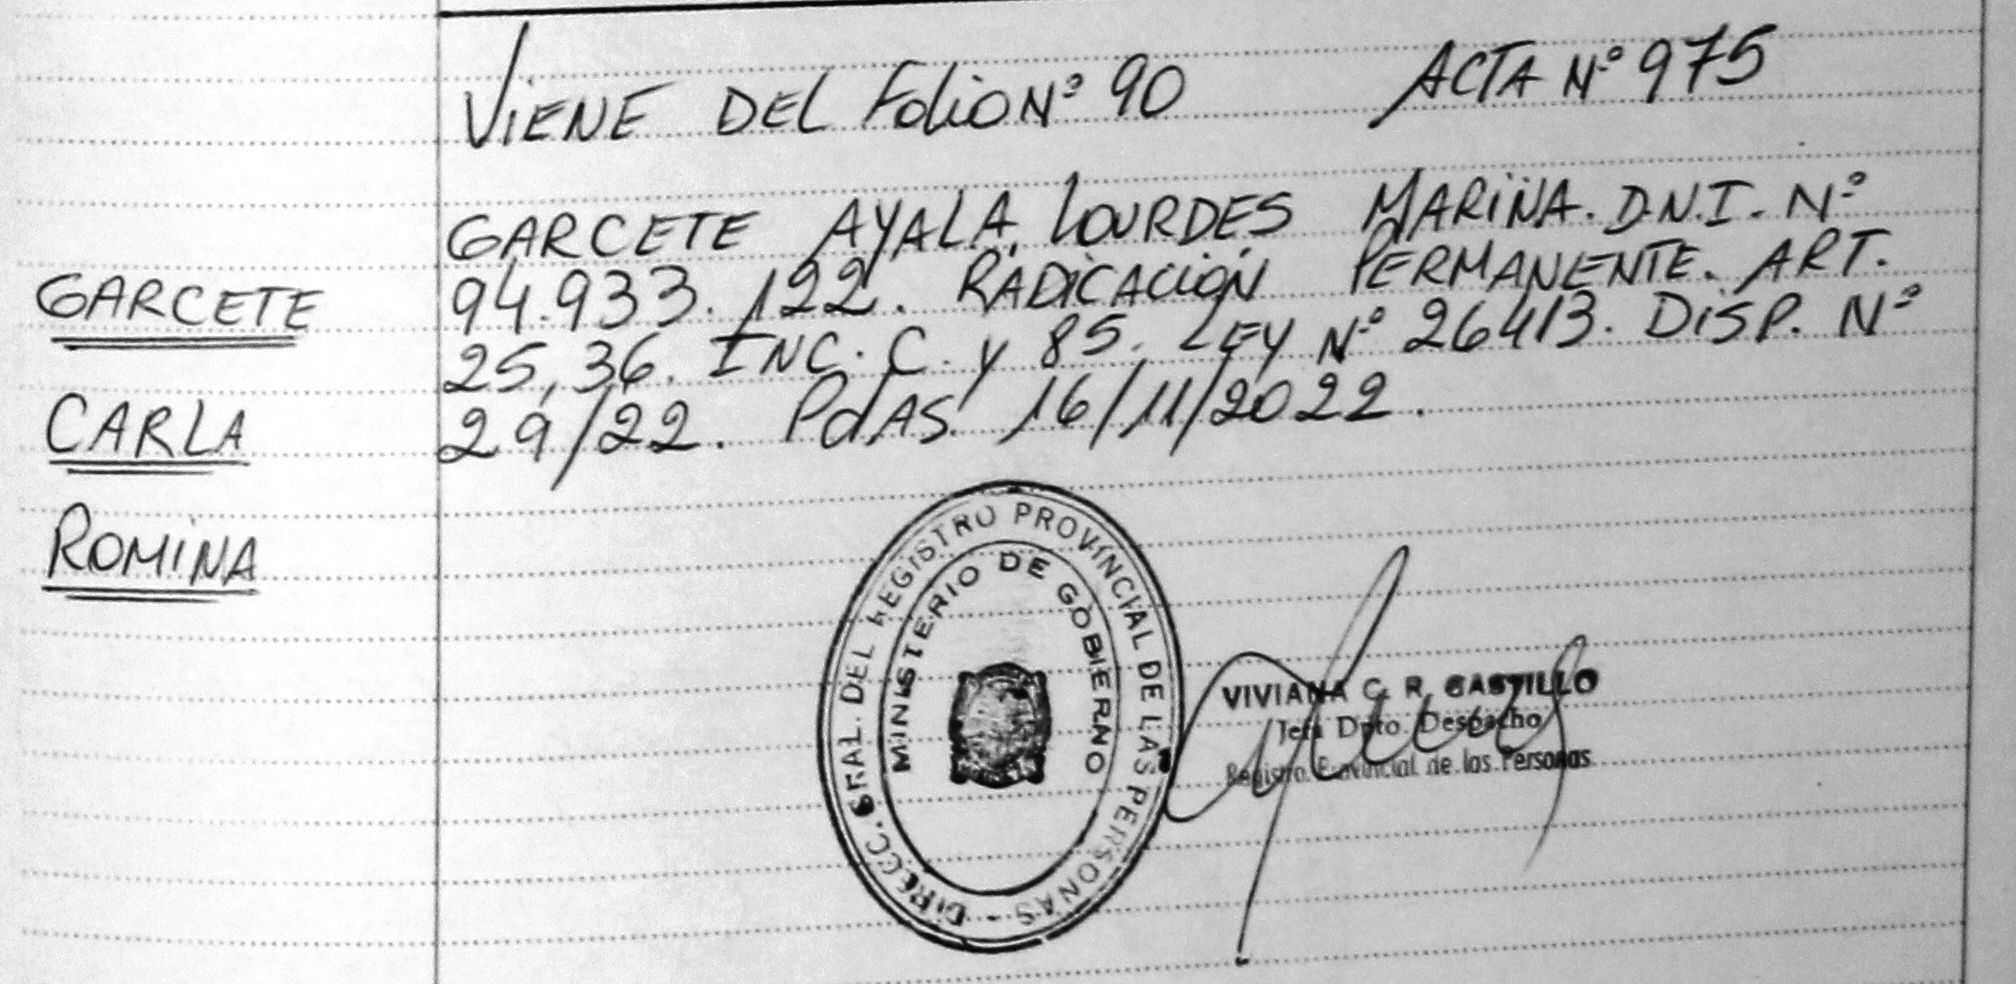 VIENE DEL FOLIO Nº 90 ACTA Nº 975
GARCETE AYALA, LOURDES MARINA. D.N.I. Nº
94.933.122. RADICACIÓN PERMANENTE. ART.
25, 36. INC. C. y 85. LEY Nº 26413. DISP. Nº
29/22. PdAS. 16/11/2022.
GARCETE
CARLA
ROMINA
DIRECC. GRAL. DEL REGISTRO PROVINCIAL DE LAS PERSONAS -
MINISTERIO DE GOBIERNO
VIVIANA C. R. CASTILLO
Jefa Dpto. Despacho
Registro Provincial de las Personas